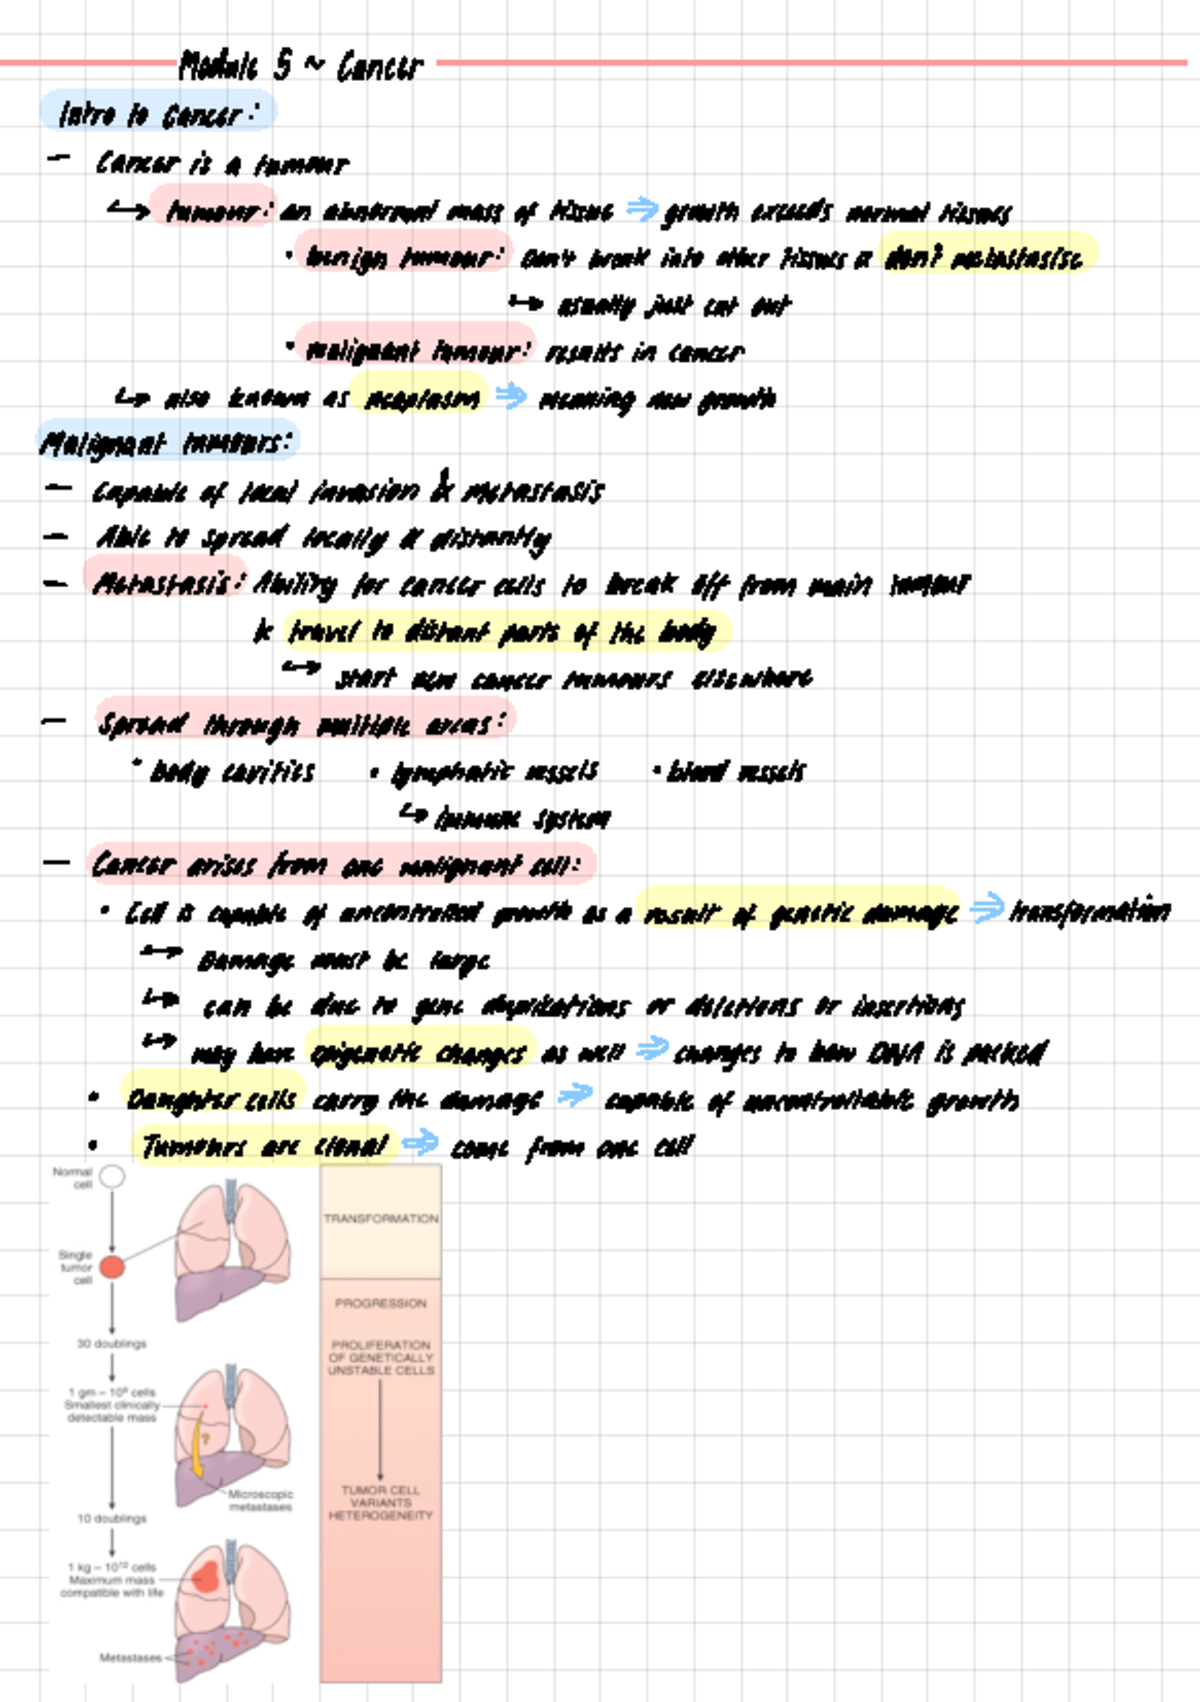 Module 5 ~ Cancer
Intro to Cancer:
— Cancer is a tumour
↳ tumour: an abnormal mass of tissue ⇒ growth exceeds normal tissues
• benign tumour: Don't break into other tissues & don't metastasise
↳ usually just cut out
• malignant tumour: results in cancer
↳ also known as neoplasm ⇒ meaning new growth
Malignant tumours:
— Capable of local invasion & metastasis
— Able to spread locally & distantly
— Metastasis: Ability for cancer cells to break off from main tumour
& travel to distant parts of the body
↳ start new cancer tumours elsewhere
— Spread through multiple areas:
• body cavities • lymphatic vessels • blood vessels
↳ immune system
— Cancer arises from one malignant cell:
• Cell is capable of uncontrolled growth as a result of genetic damage ⇒ transformation
↳ Damage must be large
↳ can be due to gene duplications or deletions or insertions
↳ may have epigenetic changes as well ⇒ changes to how DNA is packed
• Daughter cells carry the damage ⇒ capable of uncontrollable growth
• Tumours are clonal ⇒ come from one cell
Normal
cell
TRANSFORMATION
Single
tumor
cell
PROGRESSION
30 doublings
PROLIFERATION
OF GENETICALLY
UNSTABLE CELLS
1 gm – 10⁹ cells
Smallest clinically
detectable mass
?
Microscopic
metastases
TUMOR CELL
VARIANTS
HETEROGENEITY
10 doublings
1 kg – 10¹² cells
Maximum mass
compatible with life
Metastases